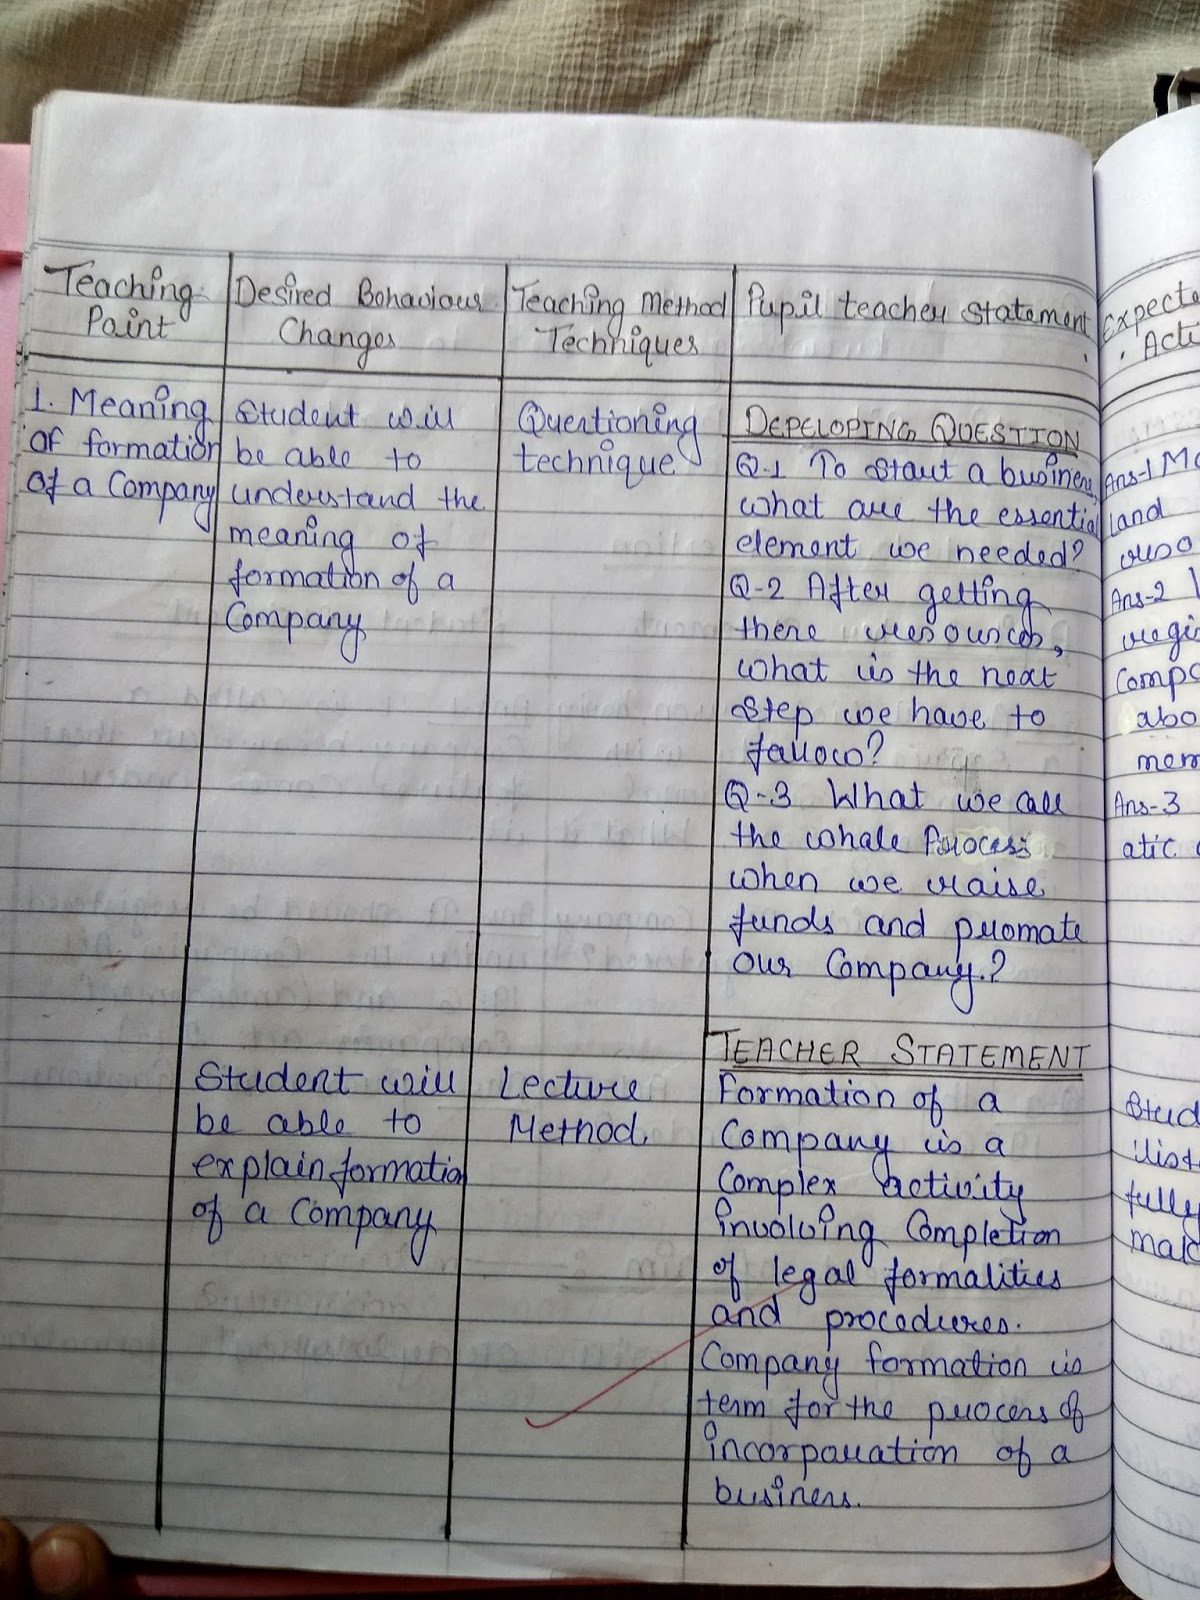 Teaching Point
Desired Behaviour Changes
Teaching Method Techniques
Pupil teacher statement
Expecte
Acti
1. Meaning
of formation
of a Company
Student will
be able to
understand the
meaning of
formation of a
Company
Questioning
technique
DEVELOPING QUESTION
Q-1 To start a business,
what are the essential
element we needed?
Q-2 After getting
these resources,
what is the next
step we have to
follow?
Q-3 What we call
the whole process
when we raise
funds and promote
our Company.?
Student will
be able to
explain formation
of a Company
Lecture
Method
TEACHER STATEMENT
Formation of a
Company is a
Complex activity
involving Completion
of legal formalities
and procedures.
Company formation is
term for the process of
incorporation of a
business.
Ans-1
land
reso
Ans-2
regi
Compa
abo
mem
Ans-3
atic
Stud
list
fully
mak